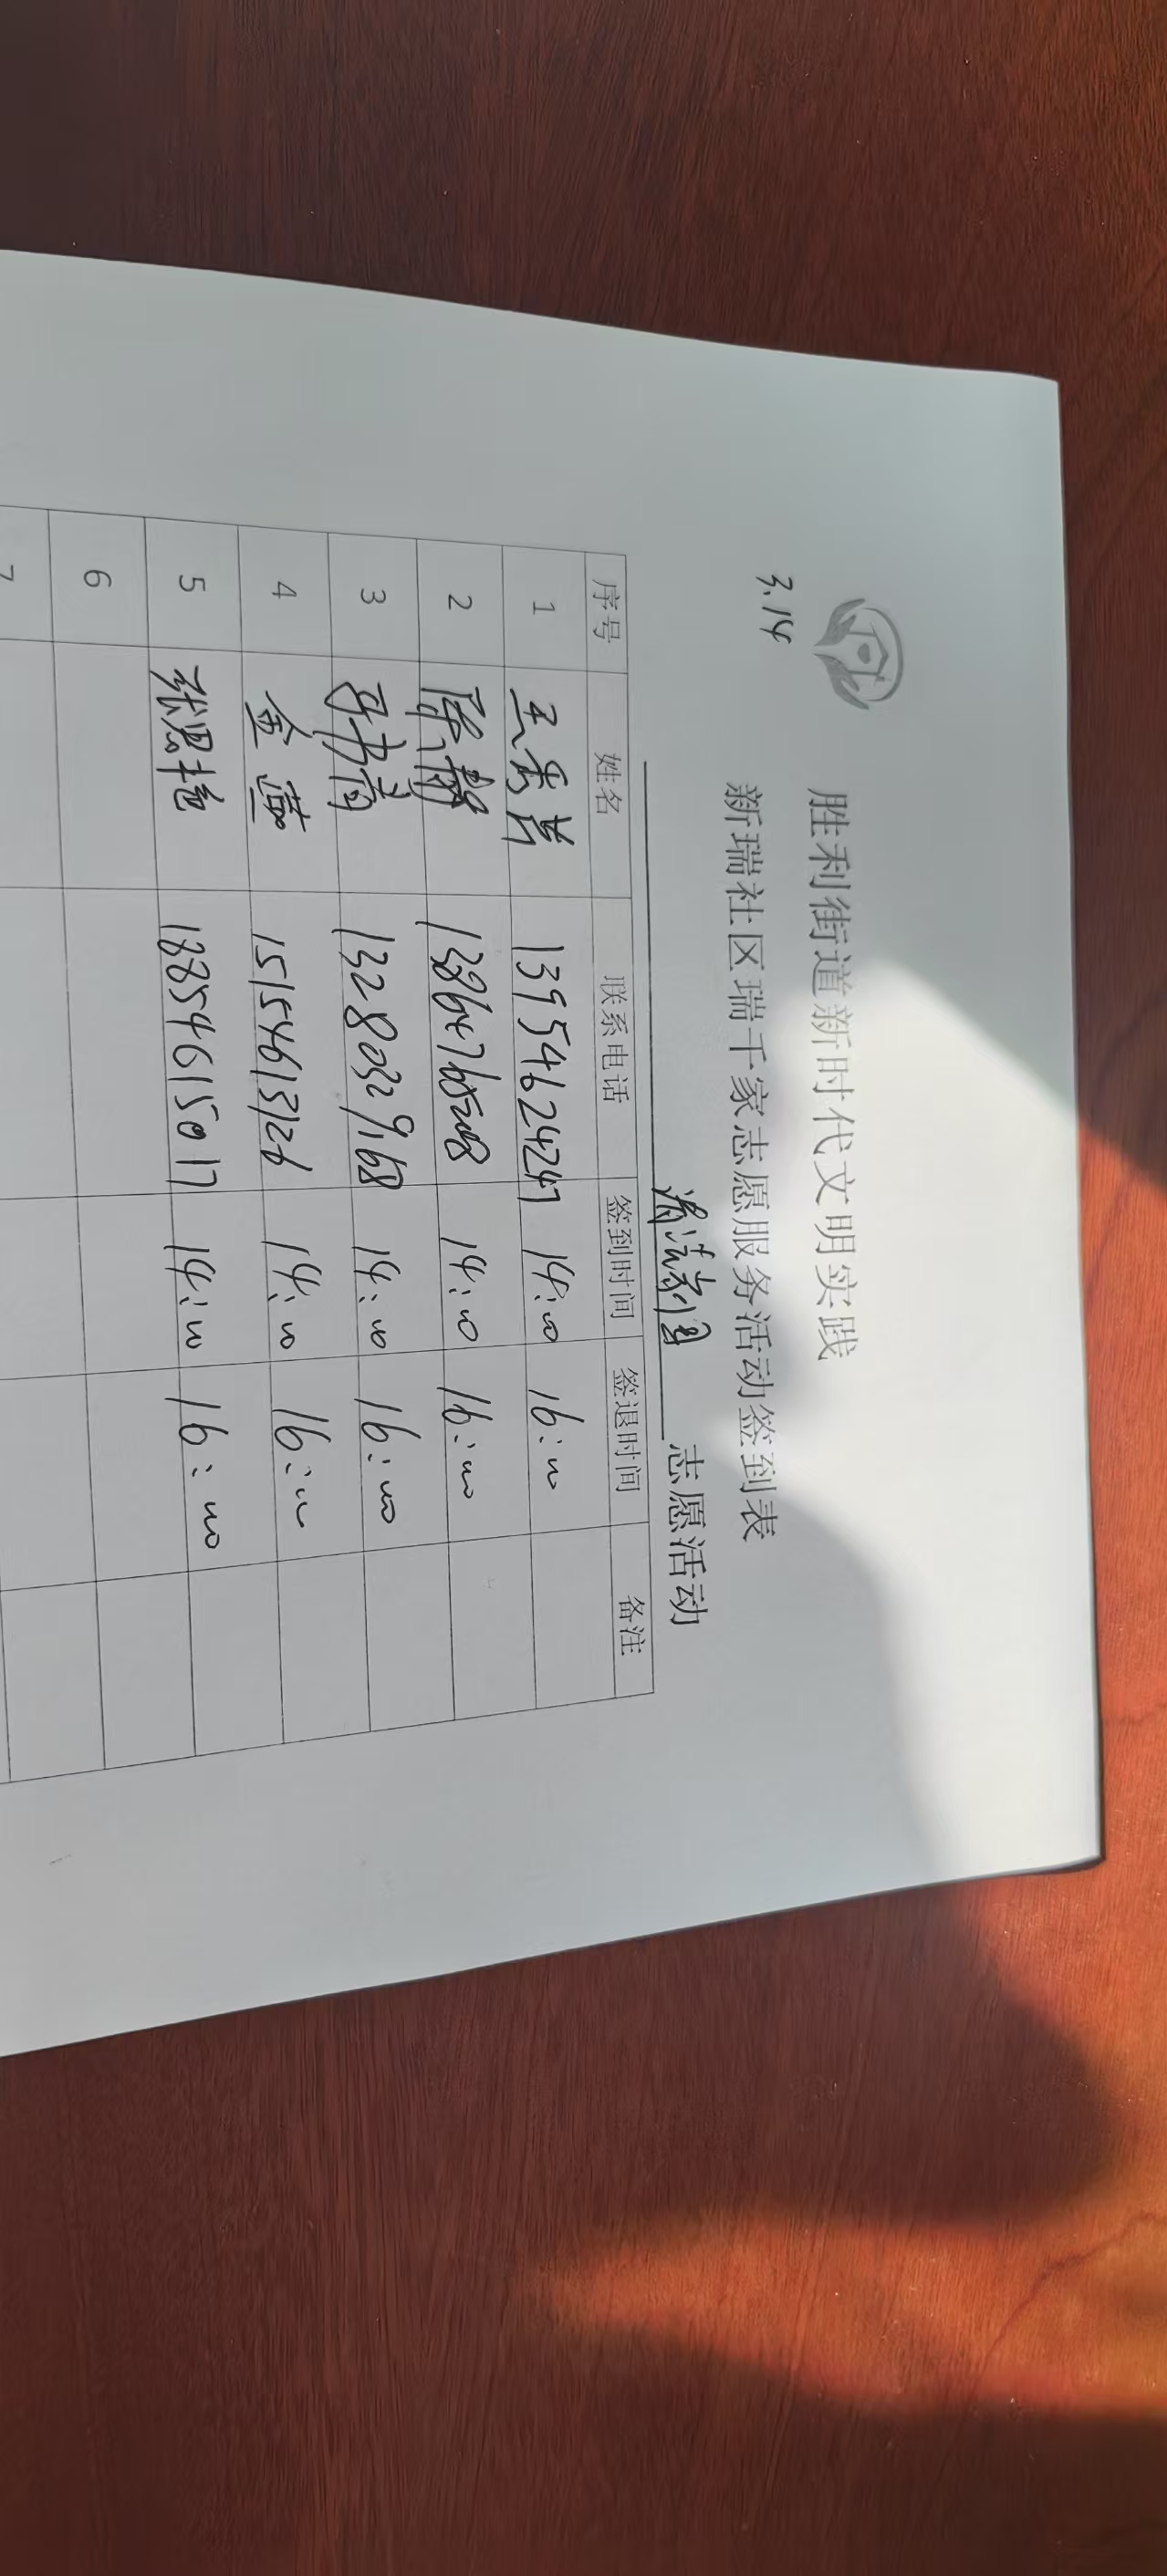 3.14
胜利街道新时代文明实践
新瑞社区瑞千家志愿服务活动签到表
清洁家园 志愿活动
序号 姓名 联系电话 签到时间 签退时间 备注
1 王秀兰 13954624247 14:00 16:00
2 陈静 13864765208 14:00 16:00
3 13280329168 14:00 16:00
4 金燕 15154613126 14:00 16:00
5 张思艳 18854615017 14:00 16:00
6
7